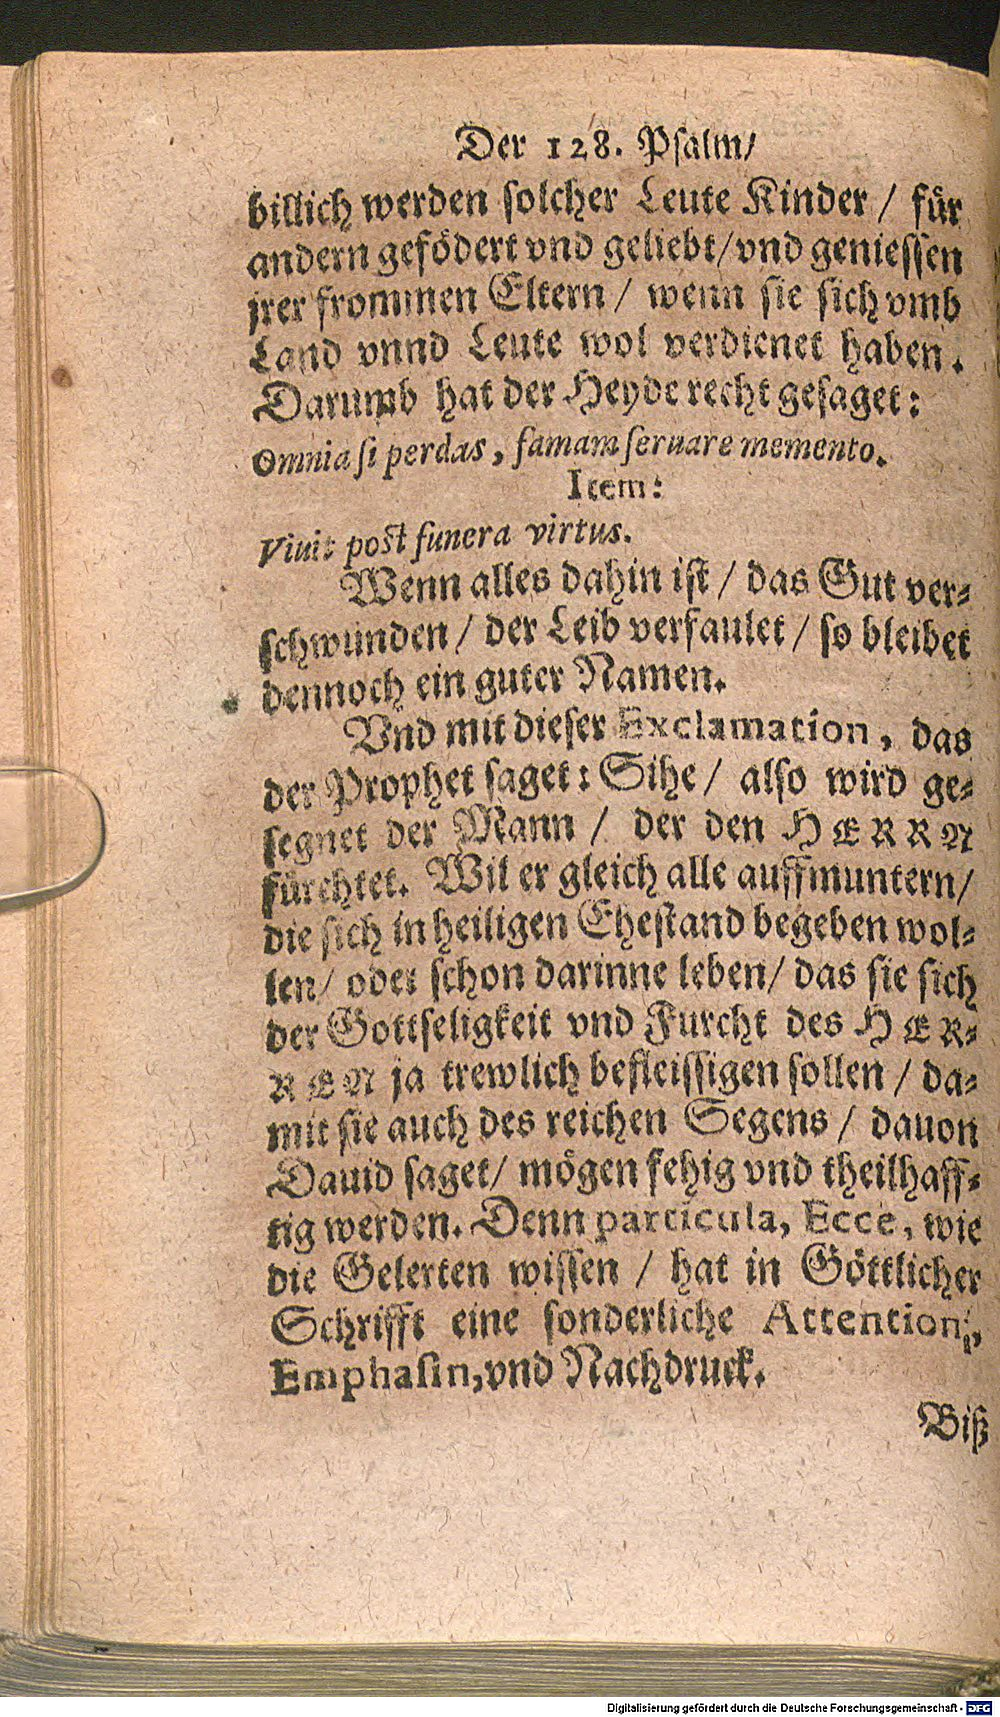 Der 128. Psalm/
billich werden solcher Leute Kinder / für
andern gefödert vnd geliebt/vnd geniessen
jrer frommen Eltern / wenn sie sich vmb
Land vnnd Leute wol verdienet haben.
Darumb hat der Heyde recht gesaget:
Omnia si perdas, famam seruare memento.
Item:
Viuit post funera virtus.
Wenn alles dahin ist / das Gut ver-
schwunden / der Leib verfaulet / so bleibet
dennoch ein guter Namen.
Vnd mit dieser Exclamation, das
der Prophet saget: Sihe / also wird ge-
segnet der Mann / der den HERRN
fürchtet. Wil er gleich alle auffmuntern/
die sich in heiligen Ehestand begeben wol-
len/ oder schon darinne leben/ das sie sich
der Gottseligkeit vnd Furcht des HER-
REN ja trewlich befleissigen sollen / da-
mit sie auch des reichen Segens / dauon
Dauid saget/ mögen fehig vnd theilhaff-
tig werden. Denn particula, Ecce, wie
die Gelerten wissen / hat in Göttlicher
Schrifft eine sonderliche Attention,
Emphasin, vnd Nachdruck.
Biß
Digitalisierung gefördert durch die Deutsche Forschungsgemeinschaft - DFG